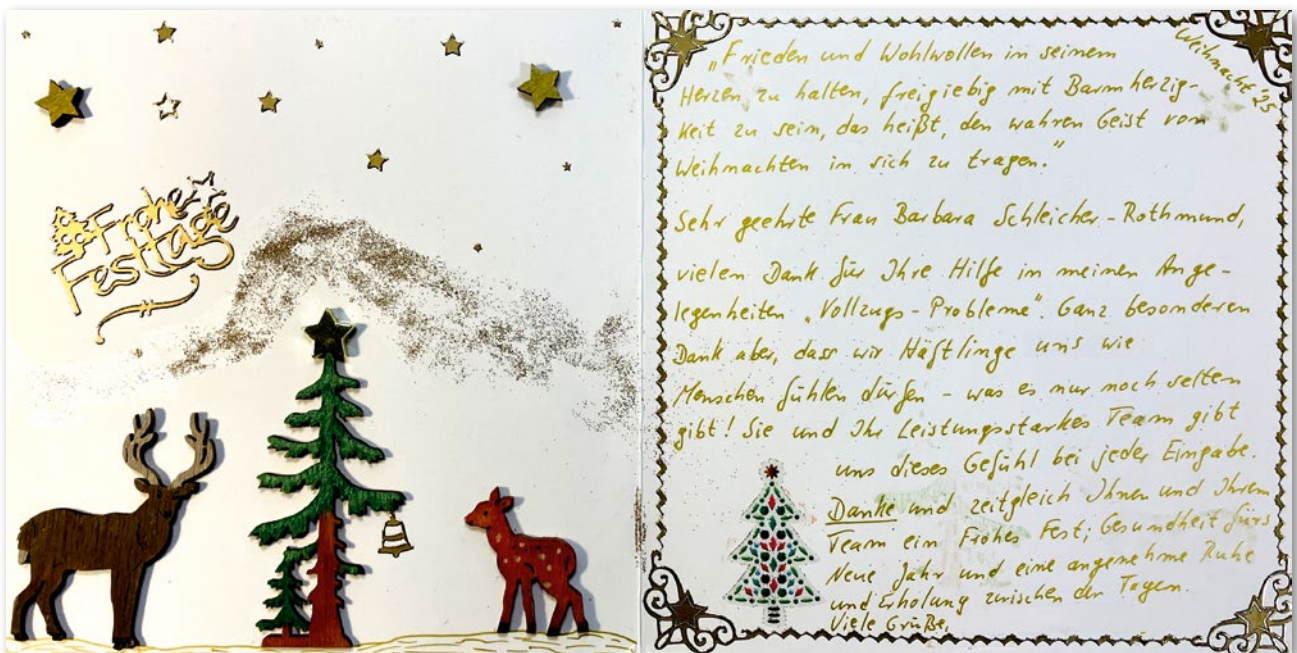 Frohe
Festtage
Weihnacht '25
„Frieden und Wohlwollen in seinem
Herzen zu halten, freigiebig mit Barmherzig-
keit zu sein, das heißt, den wahren Geist von
Weihnachten in sich zu tragen.“
Sehr geehrte Frau Barbara Schleicher-Rothmund,
vielen Dank für Ihre Hilfe in meinen Ange-
legenheiten „Vollzugs-Probleme“. Ganz besonderen
Dank aber, dass wir Häftlinge uns wie
Menschen fühlen dürfen – was es nur noch selten
gibt! Sie und Ihr Leistungsstarkes Team gibt
uns dieses Gefühl bei jeder Eingabe.
Danke und zeitgleich Ihnen und Ihrem
Team ein Frohes Fest; Gesundheit fürs
Neue Jahr und eine angenehme Ruhe
und Erholung zwischen den Tagen.
Viele Grüße,